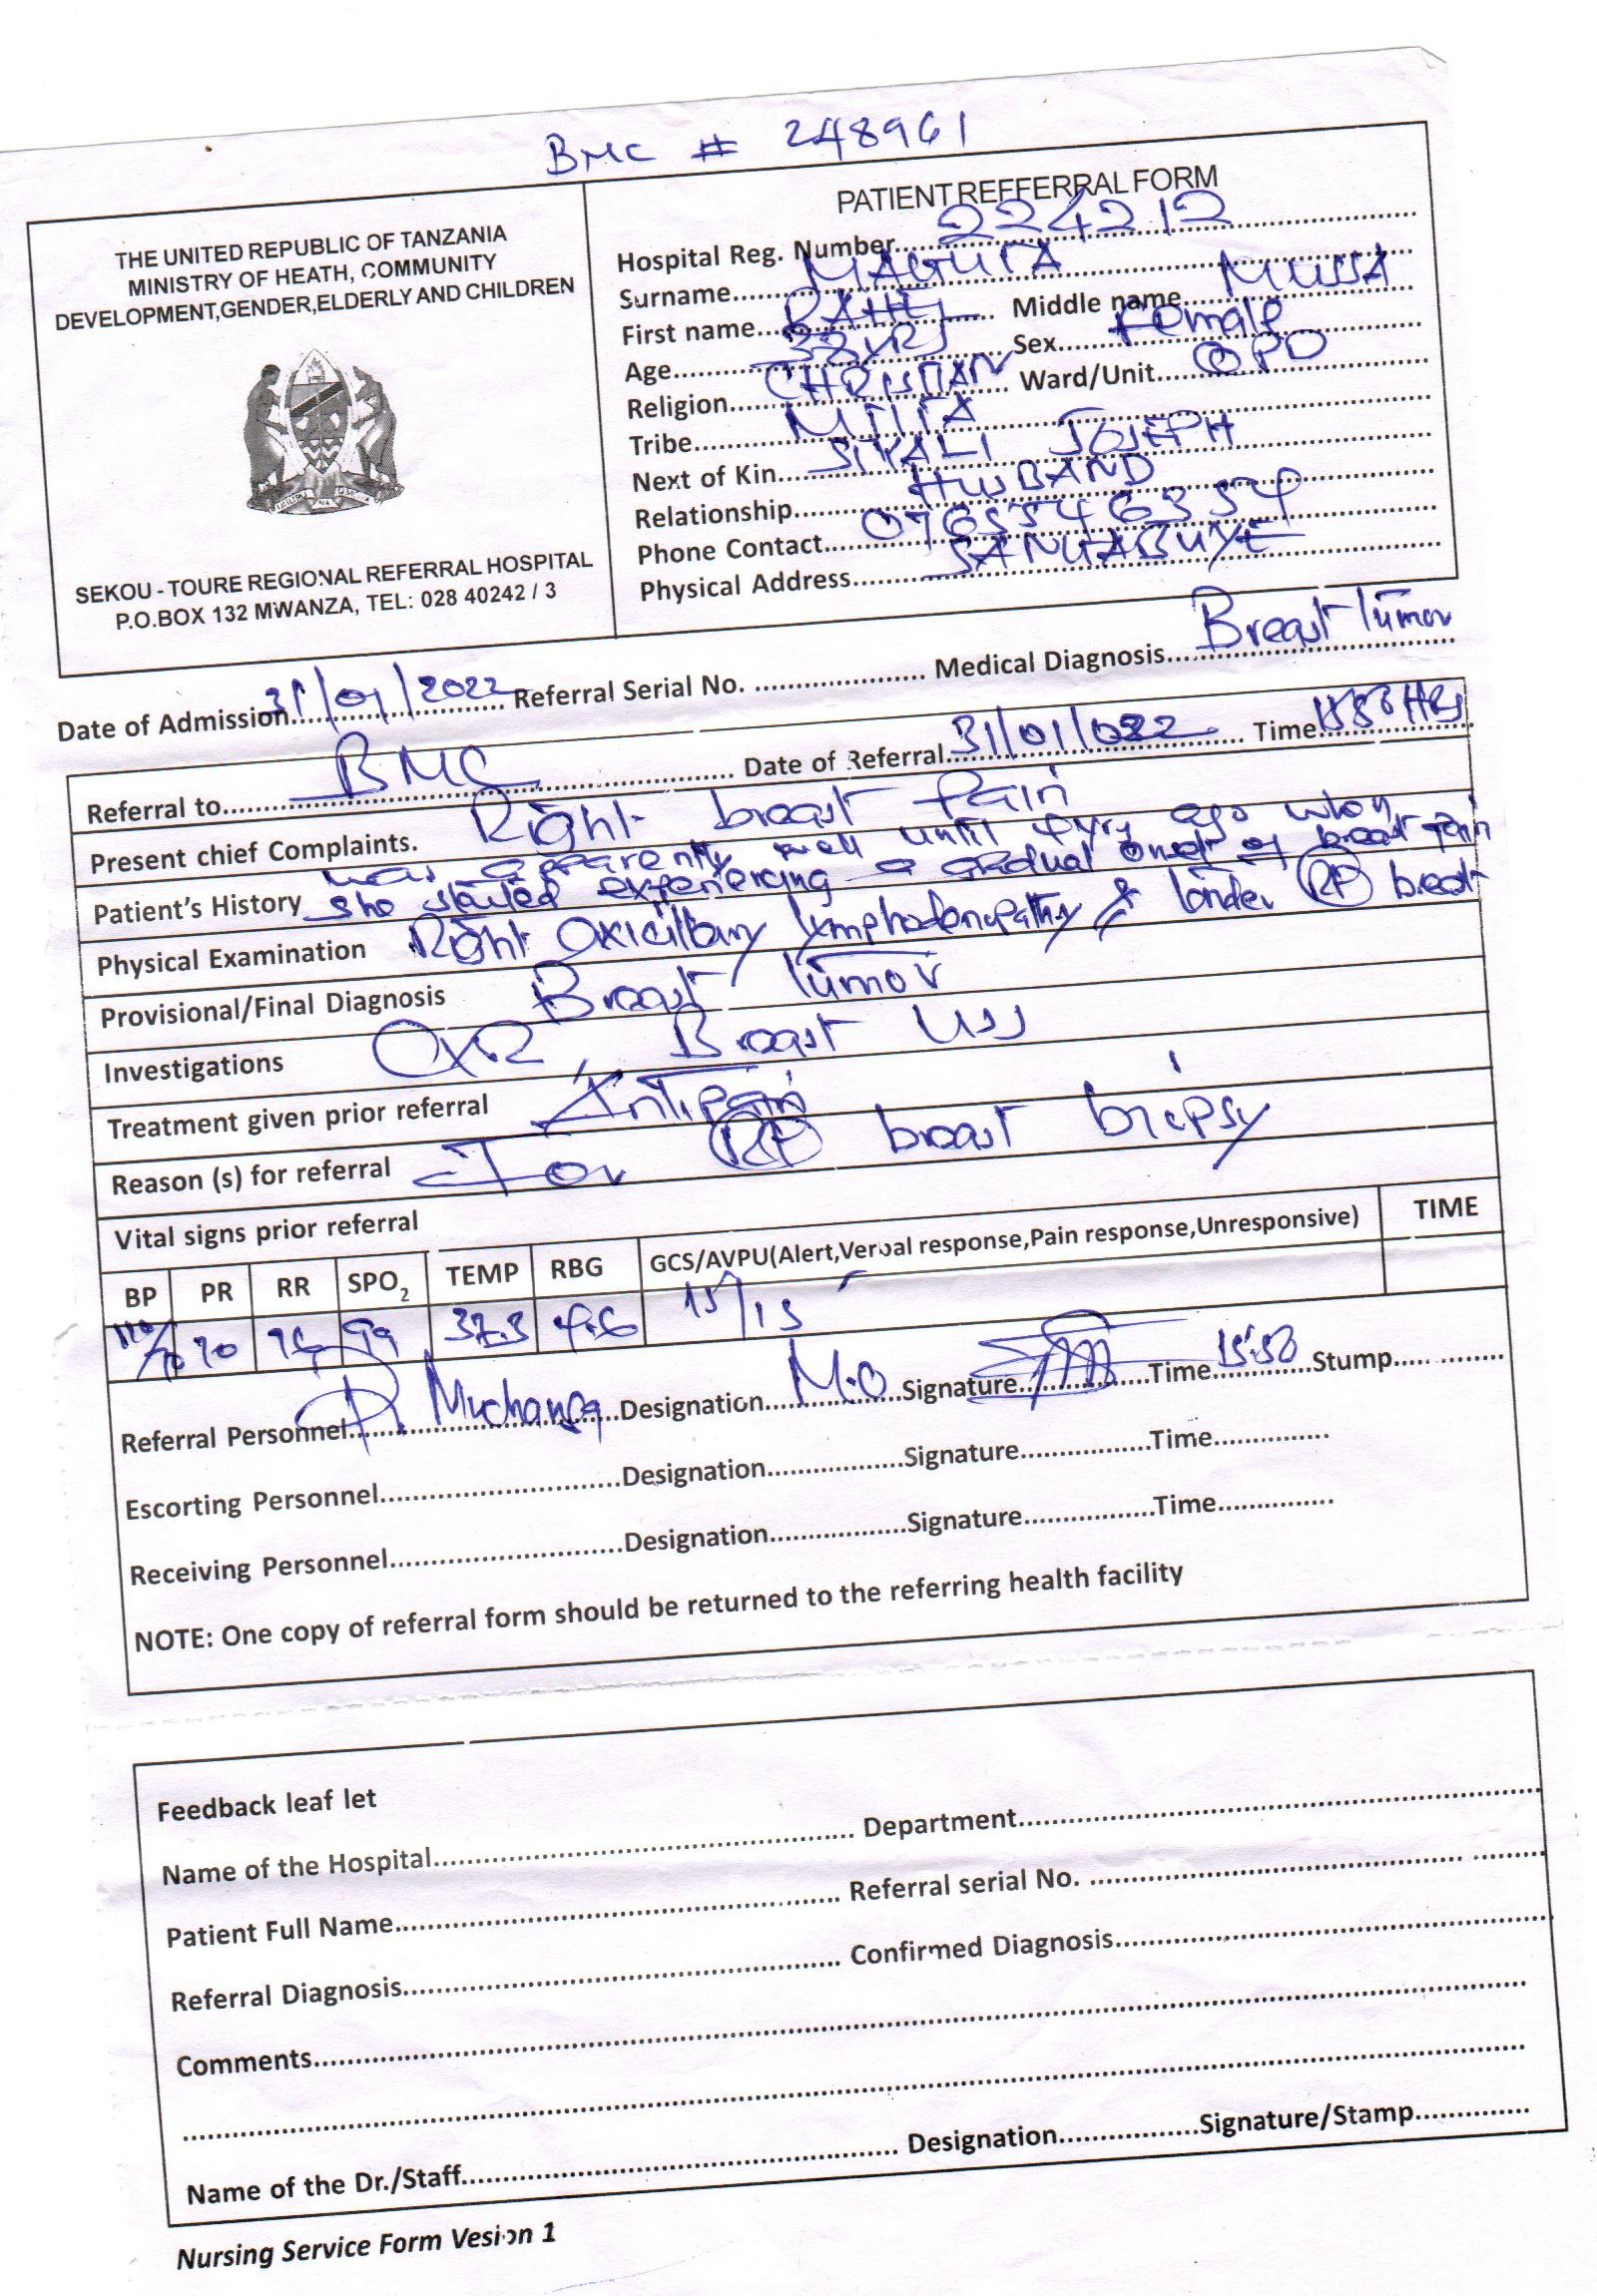 BMC # 248961
THE UNITED REPUBLIC OF TANZANIA
MINISTRY OF HEATH, COMMUNITY
DEVELOPMENT,GENDER,ELDERLY AND CHILDREN
SEKOU - TOURE REGIONAL REFERRAL HOSPITAL
P.O.BOX 132 MWANZA, TEL: 028 40242 / 3
PATIENT REFFERRAL FORM
Hospital Reg. Number 224212
Surname
First name RAHEL Middle name MUSSA
Age 38 YRS Sex Female
Religion CHRISTIAN Ward/Unit OPD
Tribe
Next of Kin JOSEPH
Relationship HUSBAND
Phone Contact
Physical Address
Date of Admission 31/01/2022 Referral Serial No. Medical Diagnosis Breast Tumor
Referral to BMC Date of Referral 31/01/ Time
Present chief Complaints. Right breast pain
Patient's History was apparently well until 4yrs ago when
she started experiencing a gradual onset of breast pain
Physical Examination Right axicillary lymphadenopathy & tender breast
Provisional/Final Diagnosis Breast Tumor
Investigations CXR, Breast USS
Treatment given prior referral Antipain
Reason (s) for referral For breast biopsy
Vital signs prior referral
BP PR RR SPO2 TEMP RBG GCS/AVPU(Alert,Verbal response,Pain response,Unresponsive) TIME
99 37.3 15/15
Referral Personnel Designation M.O Signature Time 15:50 Stump
Escorting Personnel Designation Signature Time
Receiving Personnel Designation Signature Time
NOTE: One copy of referral form should be returned to the referring health facility
Feedback leaf let
Name of the Hospital Department
Patient Full Name Referral serial No.
Referral Diagnosis Confirmed Diagnosis
Comments
Name of the Dr./Staff Designation Signature/Stamp
Nursing Service Form Vesion 1